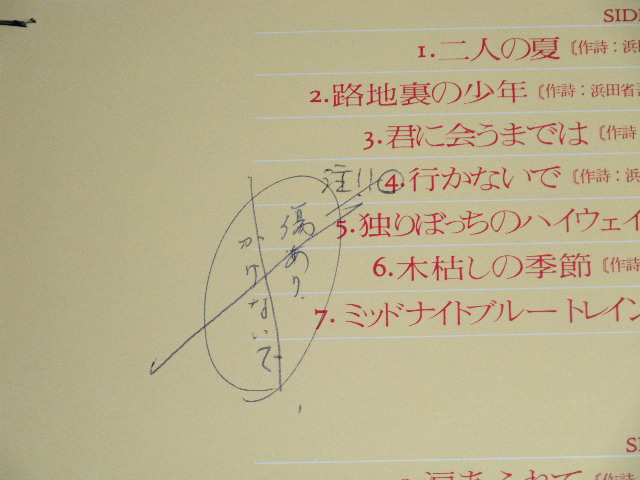 SIDE
1.二人の夏〔作詩：浜田
2.路地裏の少年〔作詩：浜田省吾
3.君に会うまでは〔作詩
注!!
4.行かないで〔作詩：浜
5.独りぼっちのハイウェイ
6.木枯しの季節〔作詩
7.ミッドナイトブルートレイン
傷あり.
かけないで
SI
涙あふれて〔作詩